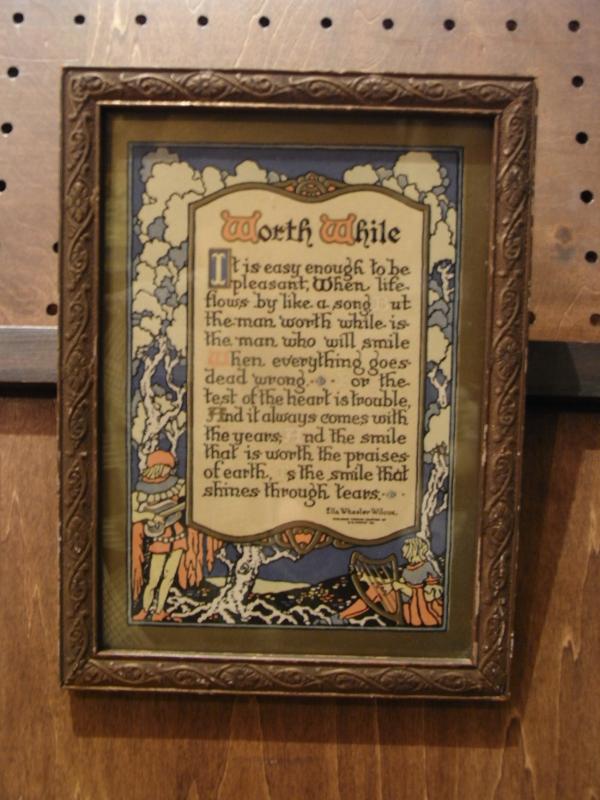 Worth While
It is easy enough to be
pleasant, When life
flows by like a song ut
the man worth while is
the man who will smile
When everything goes
dead wrong. or the
test of the heart is trouble,
And it always comes with
the years; nd the smile
that is worth the praises
of earth, s the smile that
shines through tears.
Ella Wheeler Wilcox.